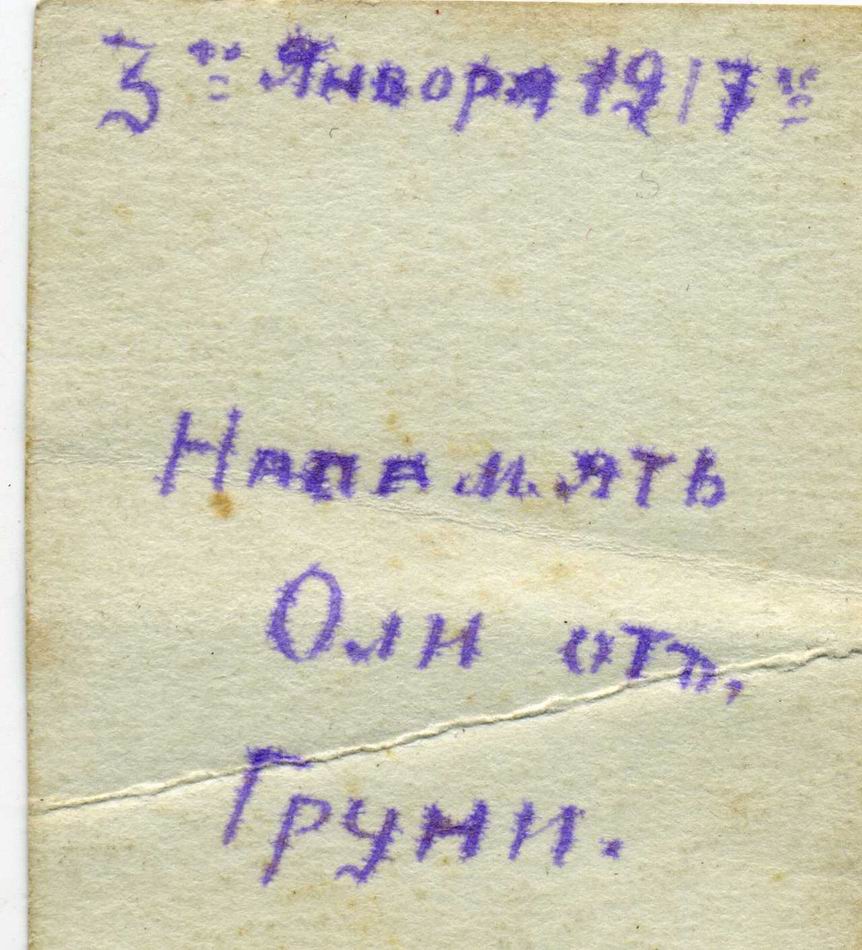 3" Января 1917"
Напамять
Оли отъ,
Груни.